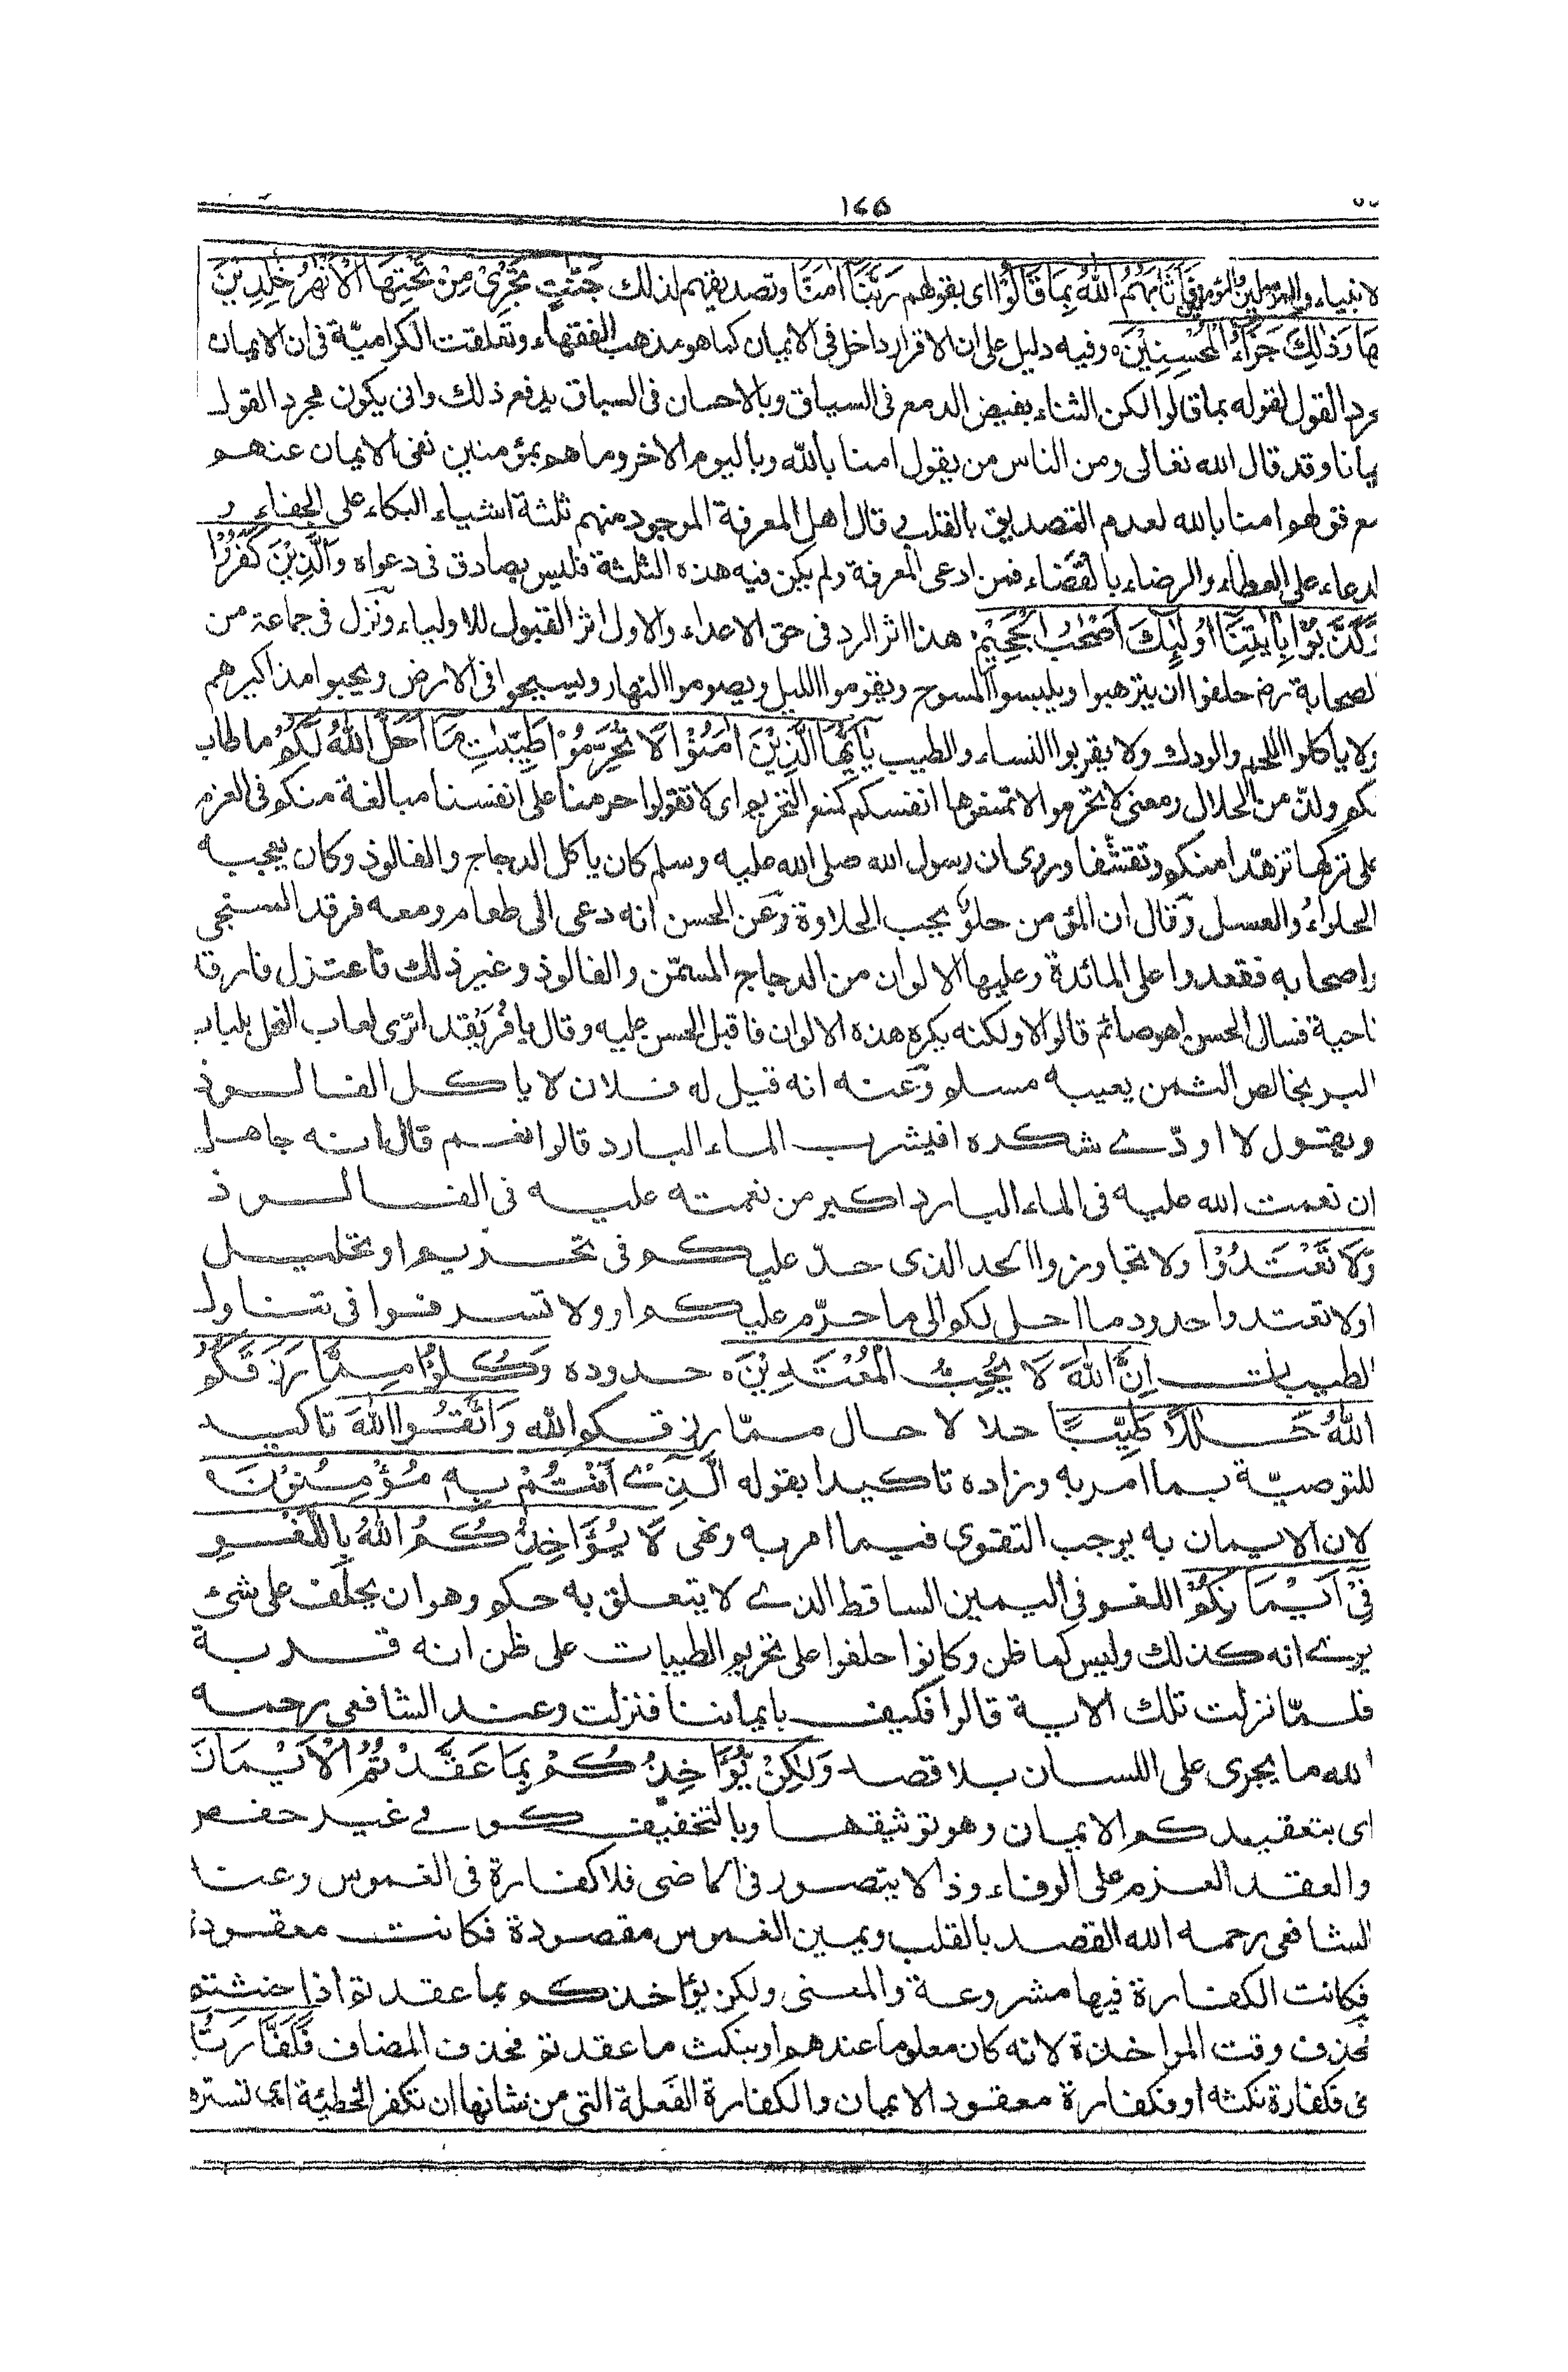 ١٤٥
لانبياء والمرسلين والمؤمنين فَأَثَابَهُمُ اللّٰهُ بِمَا قَالُوْا اى بقولهم رَبَّنَآ اٰمَنَّا وتصديقهم لذلك جَنّٰتٍ تَجْرِىْ مِنْ تَحْتِهَا الْاَنْهٰرُ خٰلِدِيْنَ
هَا وَذٰلِكَ جَزَآءُ الْمُحْسِنِيْنَ ه وفيه دليل على ان الاقرار داخل فى الايمان كما هو مذهب الفقهاء وتعلقت الكرامية فى ان الايمان
جرد القول لقوله بما قالوا لكن الثناء بفيض الدمع فى السياق وبالاحسان فى السباق يدفع ذلك وانى يكون مجرد القول
يمانا وقد قال الله تعالى ومن الناس من يقول امنا بالله وباليوم الاخر وما هم بمؤمنين نفى الايمان عنهم
مع قولهم امنا بالله لعدم التصديق بالقلب قال اهل المعرفة الموجود منهم ثلثة اشياء البكاء على الجفاء و
لدعاء على العطاء والرضاء بالقضاء فمن ادعى المعرفة ولم يكن فيه هذه الثلثة فليس بصادق فى دعواه وَالَّذِيْنَ كَفَرُوْا
وَكَذَّبُوْا بِاٰيٰتِنَآ اُولٰٓئِكَ اَصْحٰبُ الْجَحِيْمِ ه هذا اثر الرد فى حق الاعداء والاول اثر القبول للاولياء ونزل فى جماعة من
لصحابة رض حلفوا ان يترهبوا ويلبسوا المسوح ويقوموا الليل ويصوموا النهار ويسيحوا فى الارض ويجبوا مذاكيرهم
ولا ياكلوا اللحم والودك ولا يقربوا النساء والطيب يٰٓاَيُّهَا الَّذِيْنَ اٰمَنُوْا لَا تُحَرِّمُوْا طَيِّبٰتِ مَآ اَحَلَّ اللّٰهُ لَكُمْ ما طاب
لكم ولذّ من الحلال ومعنى لا تحرموا لا تمنعوها انفسكم كمنع التحريم اى لا تقولوا حرمنا على انفسنا مبالغة منكم فى العزم
على تركها تزهّدا منكم وتقشّفا وروى ان رسول الله صلى الله عليه وسلم كان ياكل الدجاج والفالوذ وكان يعجبه
الحلواء والعسل وقال ان المؤمن حلو يحب الحلاوة وعن الحسن انه دعى الى طعام ومعه فرقد السنجى
واصحابه فقعدوا على المائدة وعليها الالوان من الدجاج المسمّن والفالوذ وغير ذلك فاعتزل فارقا
ناحية فسال الحسن اهو صائم قالوا لا ولكنه يكره هذه الالوان فاقبل الحسن عليه وقال يا فُرَيْقد اترى لعاب النحل بلباب
البر بخالص السمن يعيبه مسلم وعنه انه قيل له فلان لا ياكل الفالوذ
ويقول لا اودّے شكره افيشرب الماء البارد قالوا نعم قال انه جاهل
ان نعمت الله عليه فى الماء البارد اكبر من نعمته عليه فى الفالوذ
وَلَا تَعْتَدُوْا ولا تجاوزوا الحد الذى حدّ عليكم فى تحريم او تحليل
او لا تعتدوا حدود ما احل لكم الى ما حرّم عليكم او ولا تسرفوا فى تناول
الطيبات اِنَّ اللّٰهَ لَا يُحِبُّ الْمُعْتَدِيْنَ ه حدوده وَكُلُوْا مِمَّا رَزَقَكُمُ
اللّٰهُ حَلٰلًا طَيِّبًا حلالا حال ممّا رزقكم الله وَاتَّقُوا اللّٰهَ تاكيد
للتوصيّة بما امر به وزاده تاكيدا بقوله الَّذِےْ اَنْتُمْ بِهٖ مُؤْمِنُوْنَ
لان الايمان به يوجب التقوى فيما امر به ونهى لَا يُؤَاخِذُكُمُ اللّٰهُ بِاللَّغْوِ
فِىْٓ اَيْمَانِكُمْ اللغو فى اليمين الساقط الذے لا يتعلق به حكم وهو ان يحلف على شئ
يرے انه كذلك وليس كما ظن وكانوا حلفوا على تحريم الطيبات على ظن انه قربة
فلمّا نزلت تلك الاية قالوا فكيف بايماننا فنزلت وعند الشافعى رحمه
الله ما يجرى على اللسان بلا قصد وَلٰكِنْ يُّؤَاخِذُكُمْ بِمَا عَقَّدْتُّمُ الْاَيْمَانَ
اى بتعقيدكم الايمان وهو توثيقها وبالتخفيف كوفے غير حفص
والعقد العزم على الوفاء وذا لا يتصور فى الماضى فلا كفارة فى الغموس وعند
الشافعى رحمه الله القصد بالقلب ويمين الغموس مقصودة فكانت معقودة
فكانت الكفارة فيها مشروعة والمعنى ولكن يؤاخذكم بما عقدتم اذا حنثتم
فحذف وقت المواخذة لانه كان معلوما عندهم او بنكث ما عقدتم فحذف المضاف فَكَفَّارَتُهٗ
ى فكفارة نكثه او فكفارة معقود الايمان والكفارة الفَعلة التى من شانها ان تكفر الخطيئة اى تستره